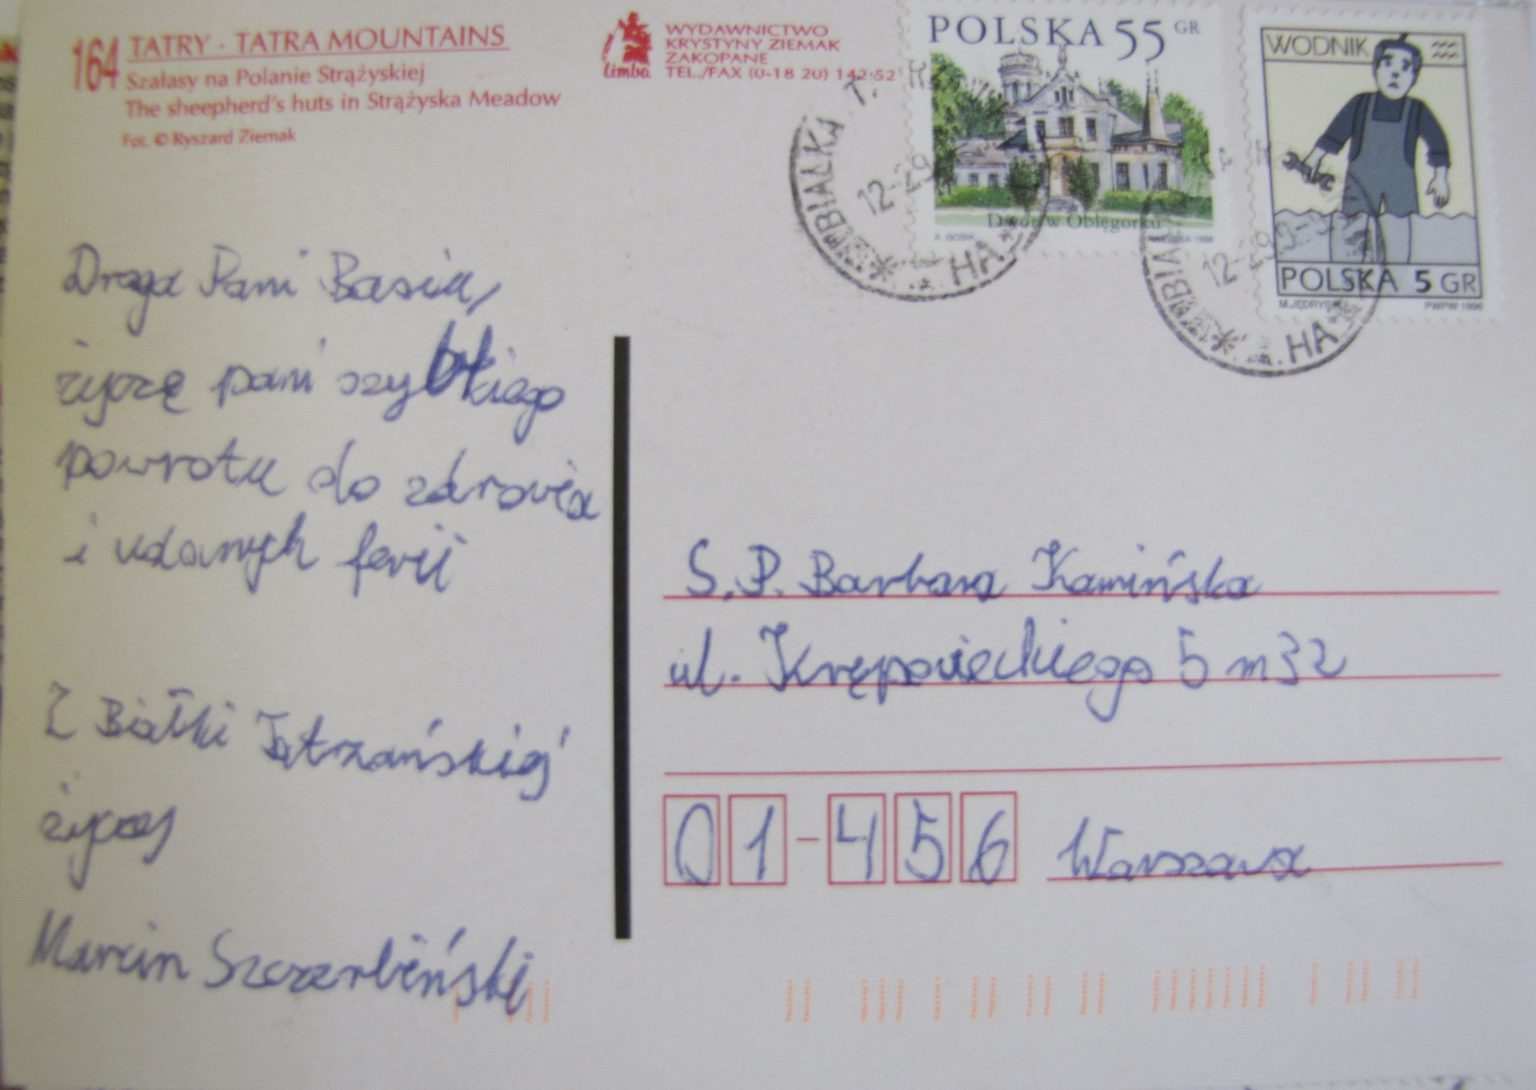 164 TATRY · TATRA MOUNTAINS
Szałasy na Polanie Strążyskiej
The sheepherd's huts in Strążyska Meadow
Fot. © Ryszard Ziemak
limba
WYDAWNICTWO
KRYSTYNY ZIEMAK
ZAKOPANE
TEL./FAX (0-18 20) 142-52
POLSKA 55 GR
Dwór w Oblęgorku
WODNIK
POLSKA 5 GR
PWPW 1996
Droga Pani Basiu,
życzę pani szybkiego
powrotu do zdrowia
i udanych ferii
Z Białki Tatrzańskiej
życzy
Marcin Szczerbiński
S.P. Barbara Kamińska
ul. Krępowieckiego 5 m 32
01-456 Warszawa